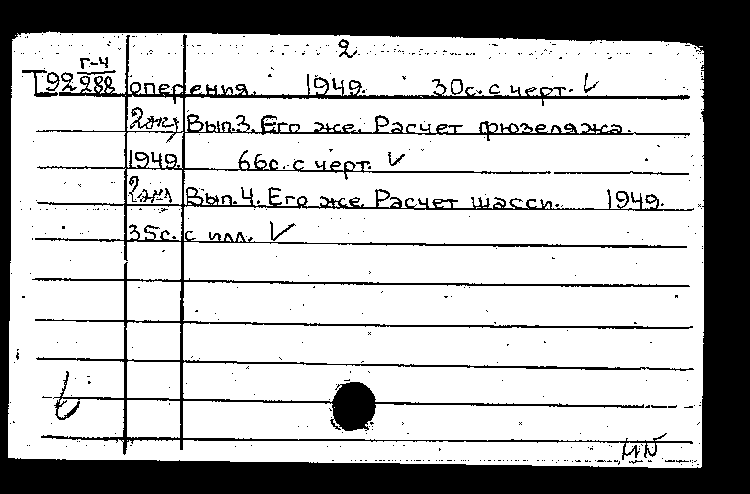 2
Г-4
T92 288 оперения. 1949. 30с. с черт. ✓
2экз Вып.3. Его же. Расчет фюзеляжа.
1949. 66с. с черт. ✓
2экз Вып.4. Его же. Расчет шасси. 1949.
35с. с илл. ✓